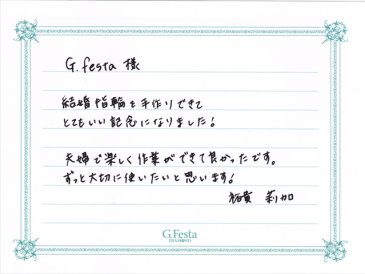 G.festa 様
結婚指輪を手作りできて
とてもいい記念になりました!
夫婦で楽しく作業ができて良かったです。
ずっと大切に使いたいと思います!
祐貴 莉加
G.Festa